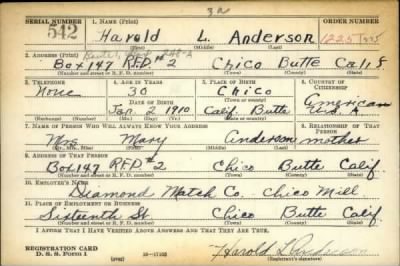 3 2
SERIAL NUMBER 1. NAME (Print) ORDER NUMBER
542 Harold L. Anderson 1225
(First) (Middle) (Last)
2. ADDRESS (Print)
Box 147 RFD #2 Chico Butte Calif
(Number and street or R. F. D. number) (Town) (County) (State)
3. TELEPHONE 4. AGE IN YEARS 5. PLACE OF BIRTH 6. COUNTRY OF CITIZENSHIP
None 30 Chico American
DATE OF BIRTH (Town or county)
Jan 2 1910 Calif. Butte
(Exchange) (Number) (Mo.) (Day) (Yr.) (State or country)
7. NAME OF PERSON WHO WILL ALWAYS KNOW YOUR ADDRESS 8. RELATIONSHIP OF THAT PERSON
Mrs Mary Anderson mother
(Mr., Mrs., Miss) (First) (Middle) (Last)
9. ADDRESS OF THAT PERSON
Box 147 RFD #2 Chico Butte Calif
(Number and street or R. F. D. number) (Town) (County) (State)
10. EMPLOYER'S NAME
Diamond Match Co. - Chico Mill
11. PLACE OF EMPLOYMENT OR BUSINESS
Sixteenth St Chico Butte Calif
(Number and street or R. F. D. number) (Town) (County) (State)
I AFFIRM THAT I HAVE VERIFIED ABOVE ANSWERS AND THAT THEY ARE TRUE.
REGISTRATION CARD
D. S. S. Form 1 Harold L Anderson
(over) (Registrant's signature)